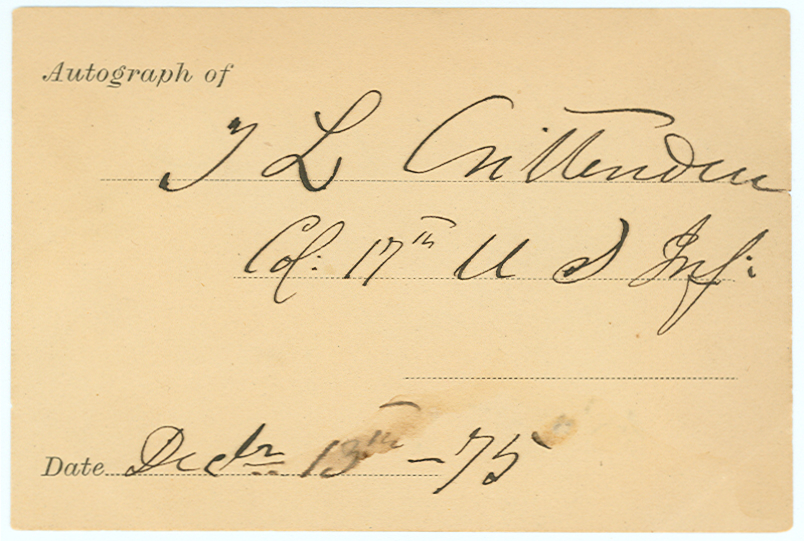 Autograph of
T L Crittenden
Col: 17th U S Inf:
Date Decbr 13th - 75